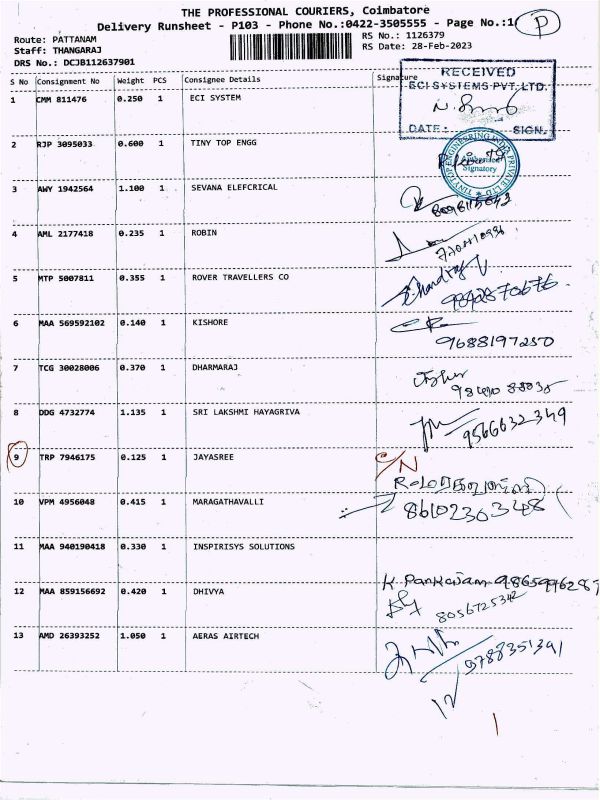 THE PROFESSIONAL COURIERS, Coimbatore
Delivery Runsheet - P103 - Phone No.:0422-3505555 - Page No.:1/
P
Route: PATTANAM
Staff: THANGARAJ
DRS No.: DCJB112637901
RS No.: 1126379
RS Date: 28-Feb-2023
S No Consignment No Weight PCS Consignee Details Signature
RECEIVED
ECI SYSTEMS PVT. LTD.
DATE: SIGN.
1 CMM 811476 0.250 1 ECI SYSTEM
2 RJP 3095033 0.600 1 TINY TOP ENGG
Authorised
Signatory
3 AWY 1942564 1.100 1 SEVANA ELEFCRICAL
4 AML 2177418 0.235 1 ROBIN
5 MTP 5007811 0.355 1 ROVER TRAVELLERS CO
6 MAA 569592102 0.140 1 KISHORE
9688197250
7 TCG 30028006 0.370 1 DHARMARAJ
8 DDG 4732774 1.135 1 SRI LAKSHMI HAYAGRIVA
9566632349
9 TRP 7946175 0.125 1 JAYASREE
C/N
10 VPM 4956048 0.415 1 MARAGATHAVALLI
8610236348
11 MAA 940190418 0.330 1 INSPIRISYS SOLUTIONS
K. Pankajam
12 MAA 859156692 0.420 1 DHIVYA
8056725342
13 AMD 26393252 1.050 1 AERAS AIRTECH
9788351391
12